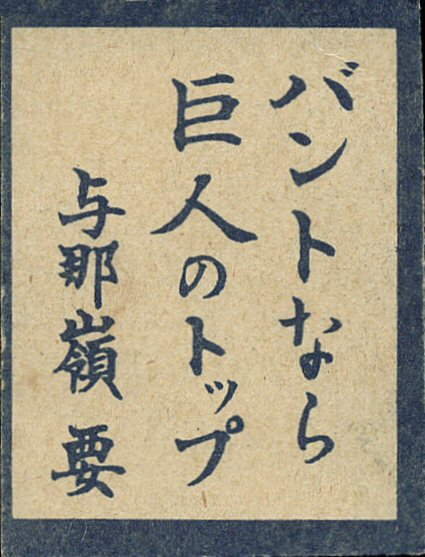 バントなら
巨人のトップ
与那嶺 要